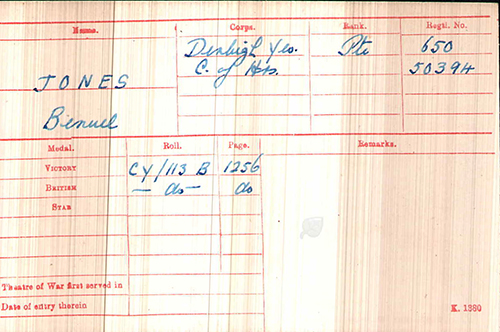 Name. Corps. Rank. Regtl. No.
Denbigh Yeo. Pte 650
C. of Hrs. 50394
JONES
Benuel
Medal. Roll. Page. Remarks.
VICTORY CY/113 B 1256
BRITISH — do — do
STAR
Theatre of War first served in
Date of entry therein
K. 1380